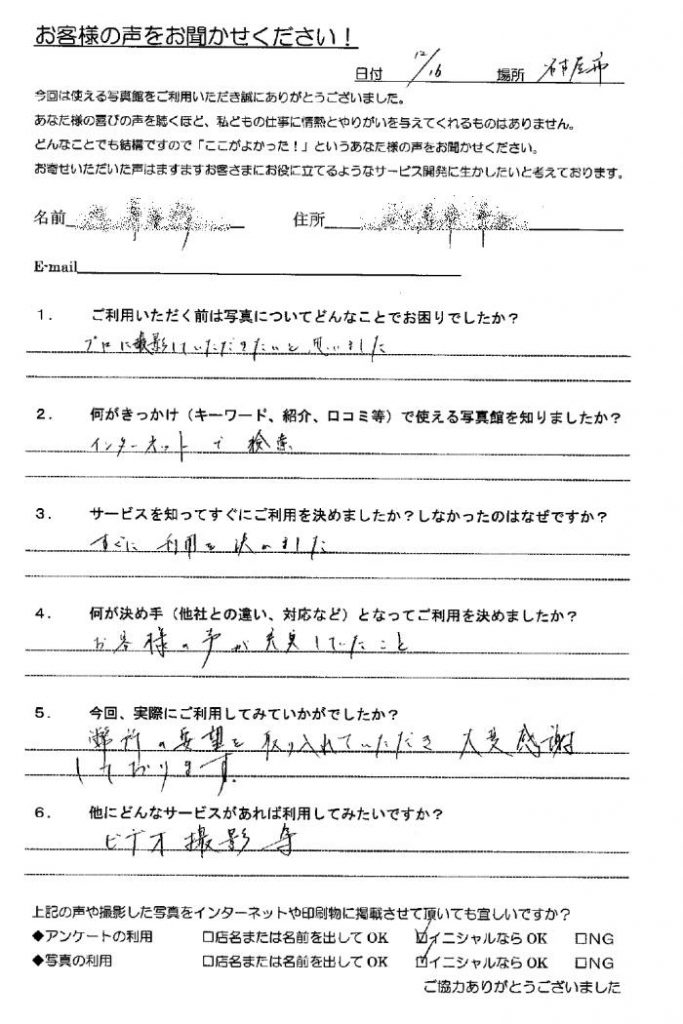 お客様の声をお聞かせください！
日付 12/16 場所 名古屋市
今回は使える写真館をご利用いただき誠にありがとうございました。
あなた様の喜びの声を聴くほど、私どもの仕事に情熱とやりがいを与えてくれるものはありません。
どんなことでも結構ですので「ここがよかった！」というあなた様の声をお聞かせください。
お寄せいただいた声はますますお客さまにお役に立てるようなサービス開発に生かしたいと考えております。
名前 住所
E-mail
1． ご利用いただく前は写真についてどんなことでお困りでしたか？
プロに撮影していただきたいと思いました
2． 何がきっかけ（キーワード、紹介、口コミ等）で使える写真館を知りましたか？
インターネットで検索
3． サービスを知ってすぐにご利用を決めましたか？しなかったのはなぜですか？
すぐに利用を決めました
4． 何が決め手（他社との違い、対応など）となってご利用を決めましたか？
お客様の声が充実していたこと
5． 今回、実際にご利用してみていかがでしたか？
弊所の要望を取り入れていただき大変感謝
しております。
6． 他にどんなサービスがあれば利用してみたいですか？
ビデオ撮影等
上記の声や撮影した写真をインターネットや印刷物に掲載させて頂いても宜しいですか？
◆アンケートの利用 □店名または名前を出してOK ☑イニシャルならOK □NG
◆写真の利用 □店名または名前を出してOK ☑イニシャルならOK □NG
ご協力ありがとうございました